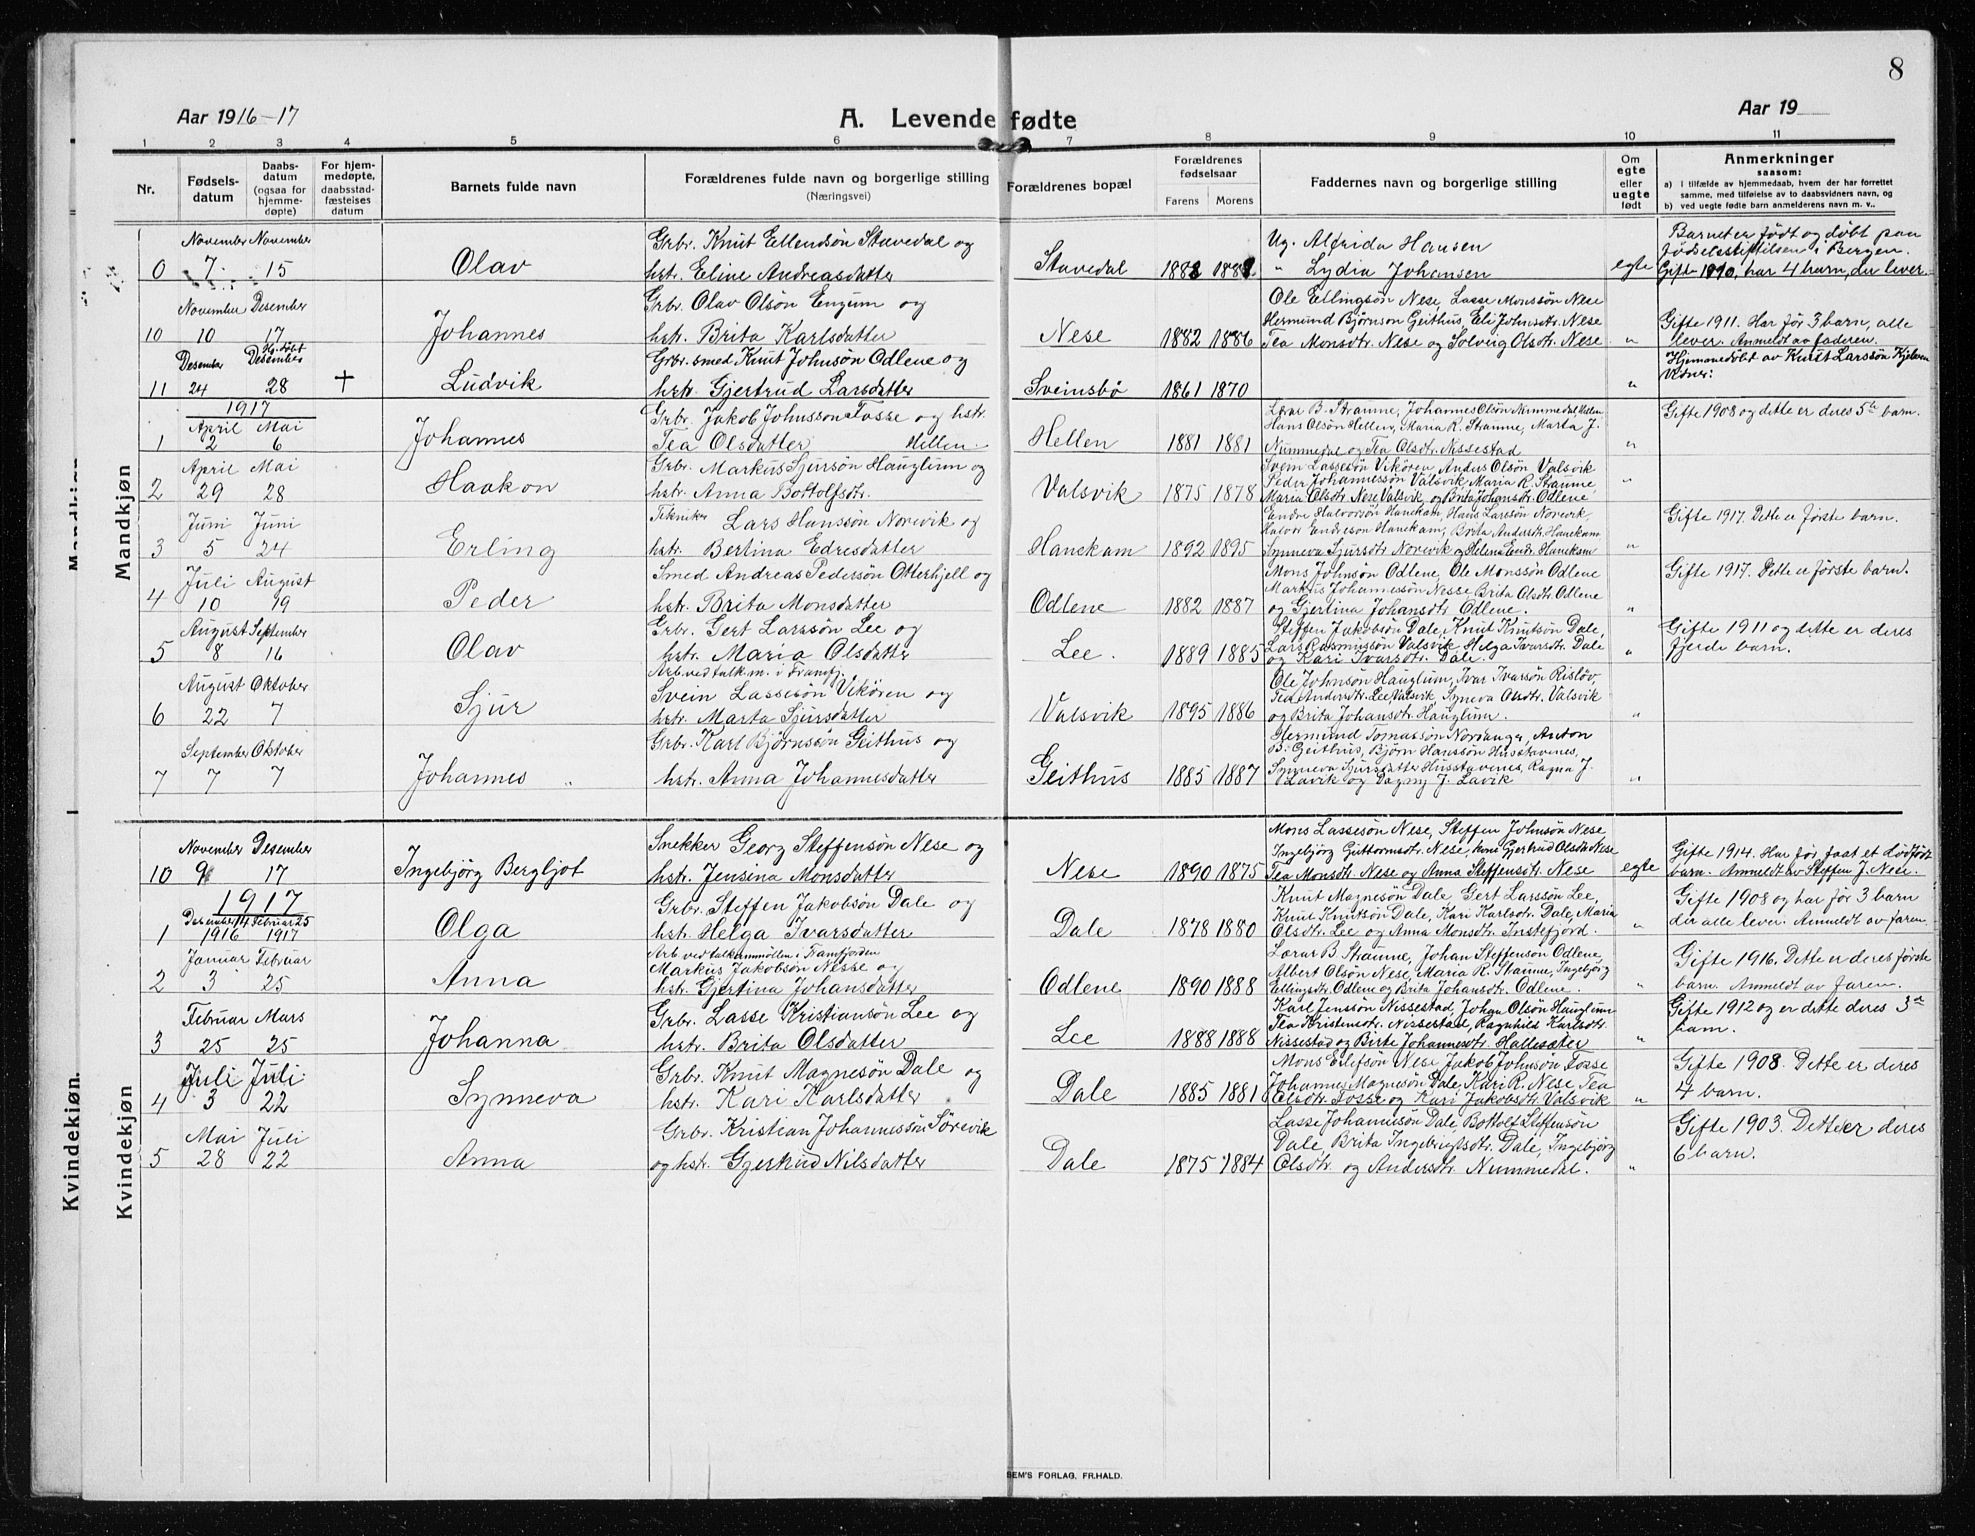 8
Aar 1916-17
A. Levende fødte
Aar 19
1 2 3 4 5 6 7 8 9 10 11
Nr.
Fødsels-
datum
Daabs-
datum
(ogsaa for
hjemme-
døpte)
For hjem-
medøpte,
daabsstad-
fæstelses
datum
Barnets fulde navn
Forældrenes fulde navn og borgerlige stilling
(Næringsvei)
Forældrenes bopæl
Forældrenes
fødselsaar
Farens Morens
Faddernes navn og borgerlige stilling
Om
egte
eller
uegte
født
Anmerkninger
saasom:
a) I tilfælde av hjemmedaab, hvem der har forrettet
samme, med tilføielse av to daabsvidners navn, og
b) ved uegte fødte barn anmelderens navn m. v..
Mandkjøn
November November
0 7 15
Olav
Grbr. Knut Ellendsön Stavedal og
hstr. Eline Andreasdatter
Stavedal 1888 1888
Ug. Alfrida Hansen
" Lydia Johansen
egte
Barnet er født og döbt paa
Fødselsstiftelsen i Bergen.
Gifte 1910, har 4 barn, der lever.
November Desember
10 10 17
Johannes
Grbr. Olav Olsön Engum og
hstr. Brita Karlsdatter
Nese 1882 1886
Ole Ellingsön Nese, Lasse Monssön Nese
Hermund Björnson Geithus, Eli Johnsdtr. Nese
Tea Monsdtr. Nese og Solvug Olsdtr. Nese
"
Gifte 1911. Har för 3 barn, alle
lever. Anmeldt av faderen.
Desember Hj. döbt Desember
11 24 28 +
Ludvik
Grbr. smed Knut Johnsön Odlene og
hstr. Gjertrud Larsdatter
Sveinsbö 1861 1870
"
Hjemmedöbt av Knut Larssön
Vidner:
1917
April Mai
1 2 6
Johannes
Grbr. Jakob Johnsson Fosse og hstr.
Tea Olsdatter Hellen
Hellen 1881 1881
Lærar B. Straume, Johannes Olsön Nummedal, Hellen,
Hans Olsön Hellen, Maria R. Straume, Marta J.
Nummedal og Tea Olsdtr. Nissestad
"
Gifte 1908 og dette er deres 5te barn.
April Mai
2 29 28
Haakon
Grbr. Markus Sjursön Hauglum og
hstr. Anna Bottolfsdtr.
Valsvik 1875 1878
Svein Lassesön Vikören, Anders Olsön Valsvik
Peder Johannesson Valsvik Maria R. Straume
Maria Olsdtr. Nese Valsvik og Brita Johansdtr. Odlene
"
Juni Juni
3 5 24
Erling
Tekniker Lars Hanssön Norevik og
hstr. Bertina Edresdatter
Hanekam 1892 1895
Endre Halvorsön Hanekam, Hans Larssön Norevik,
Halvor Endreson Hanekam, Brita Andersdtr. Hanekam
Synneva Sjursdtr. Norevik og Helena Endr. Hanekam
"
Gifte 1917. Dette er förste barn.
Juli August
4 10 19
Peder
Smed Andreas Pedersön Otterhjell og
hstr. Brita Monsdatter
Odlene 1882 1887
Mons Johnsön Odlene, Ole Monssön Odlene
Markus Johannessön Nesse, Brita Olsdtr. Odlene
og Gjertina Johansdtr. Odlene.
"
Gifte 1917. Dette er förste barn.
August September
5 8 16
Olav
Grbr. Gert Larssön Lee og
hstr. Maria Olsdatter
Lee. 1889 1885
Steffen Jakobsön Dale, Knut Knutsön Dale,
Lars Rasmussön Valsvik, Helga Ivarsdtr. Dale
og Kari Ivarsdtr. Dale.
"
Gifte 1911 og dette er deres
fjerde barn.
August Oktober
6 22 7
Sjur
Arb. ved talk.m. i Framfj.
Svein Lassesön Vikören og
hstr. Marta Sjursdatter
Valsvik 1895 1886
Ole Johnsön Hauglum, Ivar Ivarsön Rislöv,
Tea Andersdtr. Lee, Valsvik, Syneva Olsdtr. Valsvik
og Brita Johansdtr. Hauglum.
"
September Oktober
7 7 7
Johannes
Grbr. Karl Björnssön Geithus og
hstr. Anna Johannesdatter
Geithus 1885 1887
Hermund Tomassön Nordanger, Anton
B. Geithus, Björn Hanssön Husstavenes,
Synneva Sjursdatter Husstavenes, Ragna J.
Lavik og Dagny J. Lavik
"
Kvindekjøn
November Desember
10 9 17
Ingebjörg Bergljot
Snekker Georg Steffensön Nese og
hstr. Jensina Monsdatter
Nese 1890 1875
Mons Lassesön Nese, Steffen Johnsön Nese
Ingebjörg Guttormsdtr. Nese, kone Gjertrud Olsdtr. Nese
Tea Monsdtr. Nese og Anna Steffensdtr. Nese
egte
Gifte 1914. Har för faat et dödfödt
barn. Anmeldt av Steffen J. Nese.
1917
Desember 14 Februar 25
1 1916 1917
Olga
Grbr. Steffen Jakobsön Dale og
hstr. Helga Ivarsdatter
Dale 1878 1880
Knut Magnesön Dale, Gert Larssön Lee,
Knut Knutsön Dale, Kari Karlsdtr. Dale, Maria
Olsdtr. Lee og Anna Monsdtr. Instefjord.
"
Gifte 1908 og har för 3 barn
der alle lever. Anmeldt av faren.
Januar Februar
2 3 25
Anna
Arb ved talkummöllen i Framfjorden
Markus Jakobsön Nesse og
hstr. Gjertina Johansdatter
Odlene 1890 1888
Lærar B. Straume, Johan Steffenson Odlene,
Albert Olsön Nese, Maria R. Staume, Ingebjörg
Ellingsdtr. Odlene og Brita Johansdtr. Odlene.
"
Gifte 1916. Dette er deres förste
barn. Anmeldt av faren.
Februar Mars
3 25 25
Johanna
Grbr. Lasse Kristiansön Lee og
hstr. Brita Olsdatter
Lee 1888 1888
Karl Jenssön Nissestad, Johan Olsön Hauglum
Tea Kristensdtr. Nissestad, Ragnhild Karlsdtr.
Nissestad og Birte Johannesdtr. Hallesæter
"
Gifte 1912 og er dette deres 3de
barn.
Juli Juli
4 3 22
Synneva
Grbr. Knut Magnesön Dale og
hstr. Kari Karlsdatter
Dale 1885 1881
Mons Eilefsön Nese Jakob Johnsön Fosse
Johannes Magnesön Dale, Kari R. Nese, Tea
Olsdtr. Fosse og Kari Jakobsdtr. Valsvik
"
Gifte 1908. Dette er deres
4 barn.
Mai Juli
5 28 22
Anna
Grbr. Kristian Johannessön Sörevik
og hstr. Gjertrud Nilsdatter
Dale 1875 1884
Lasse Johannsön Dale, Bottolf Steffensön
Dale, Brita Ingebrigtsdtr. Dale, Ingebjörg
Olsdtr. og Andersdtr. Nummedal.
"
Gifte 1903. Dette er deres
6 barn.
SEM'S FORLAG, FR.HALD.
Mandkjøn
Kvindekjøn.